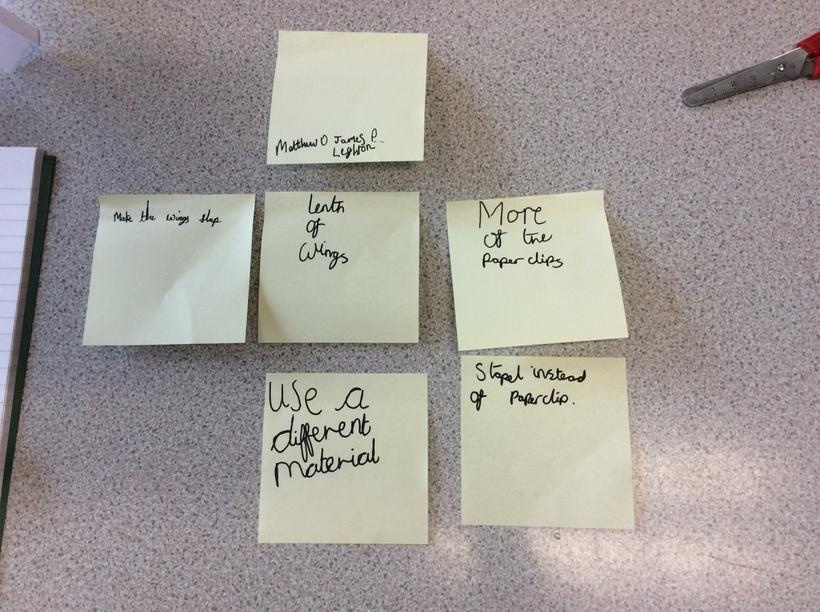 Matthew O James P.
Leyton
Make the wings flap
lenth
of
Wings
More
of the
Paper clips
Use a
different
Material
Stapel instead
of Paperclip.